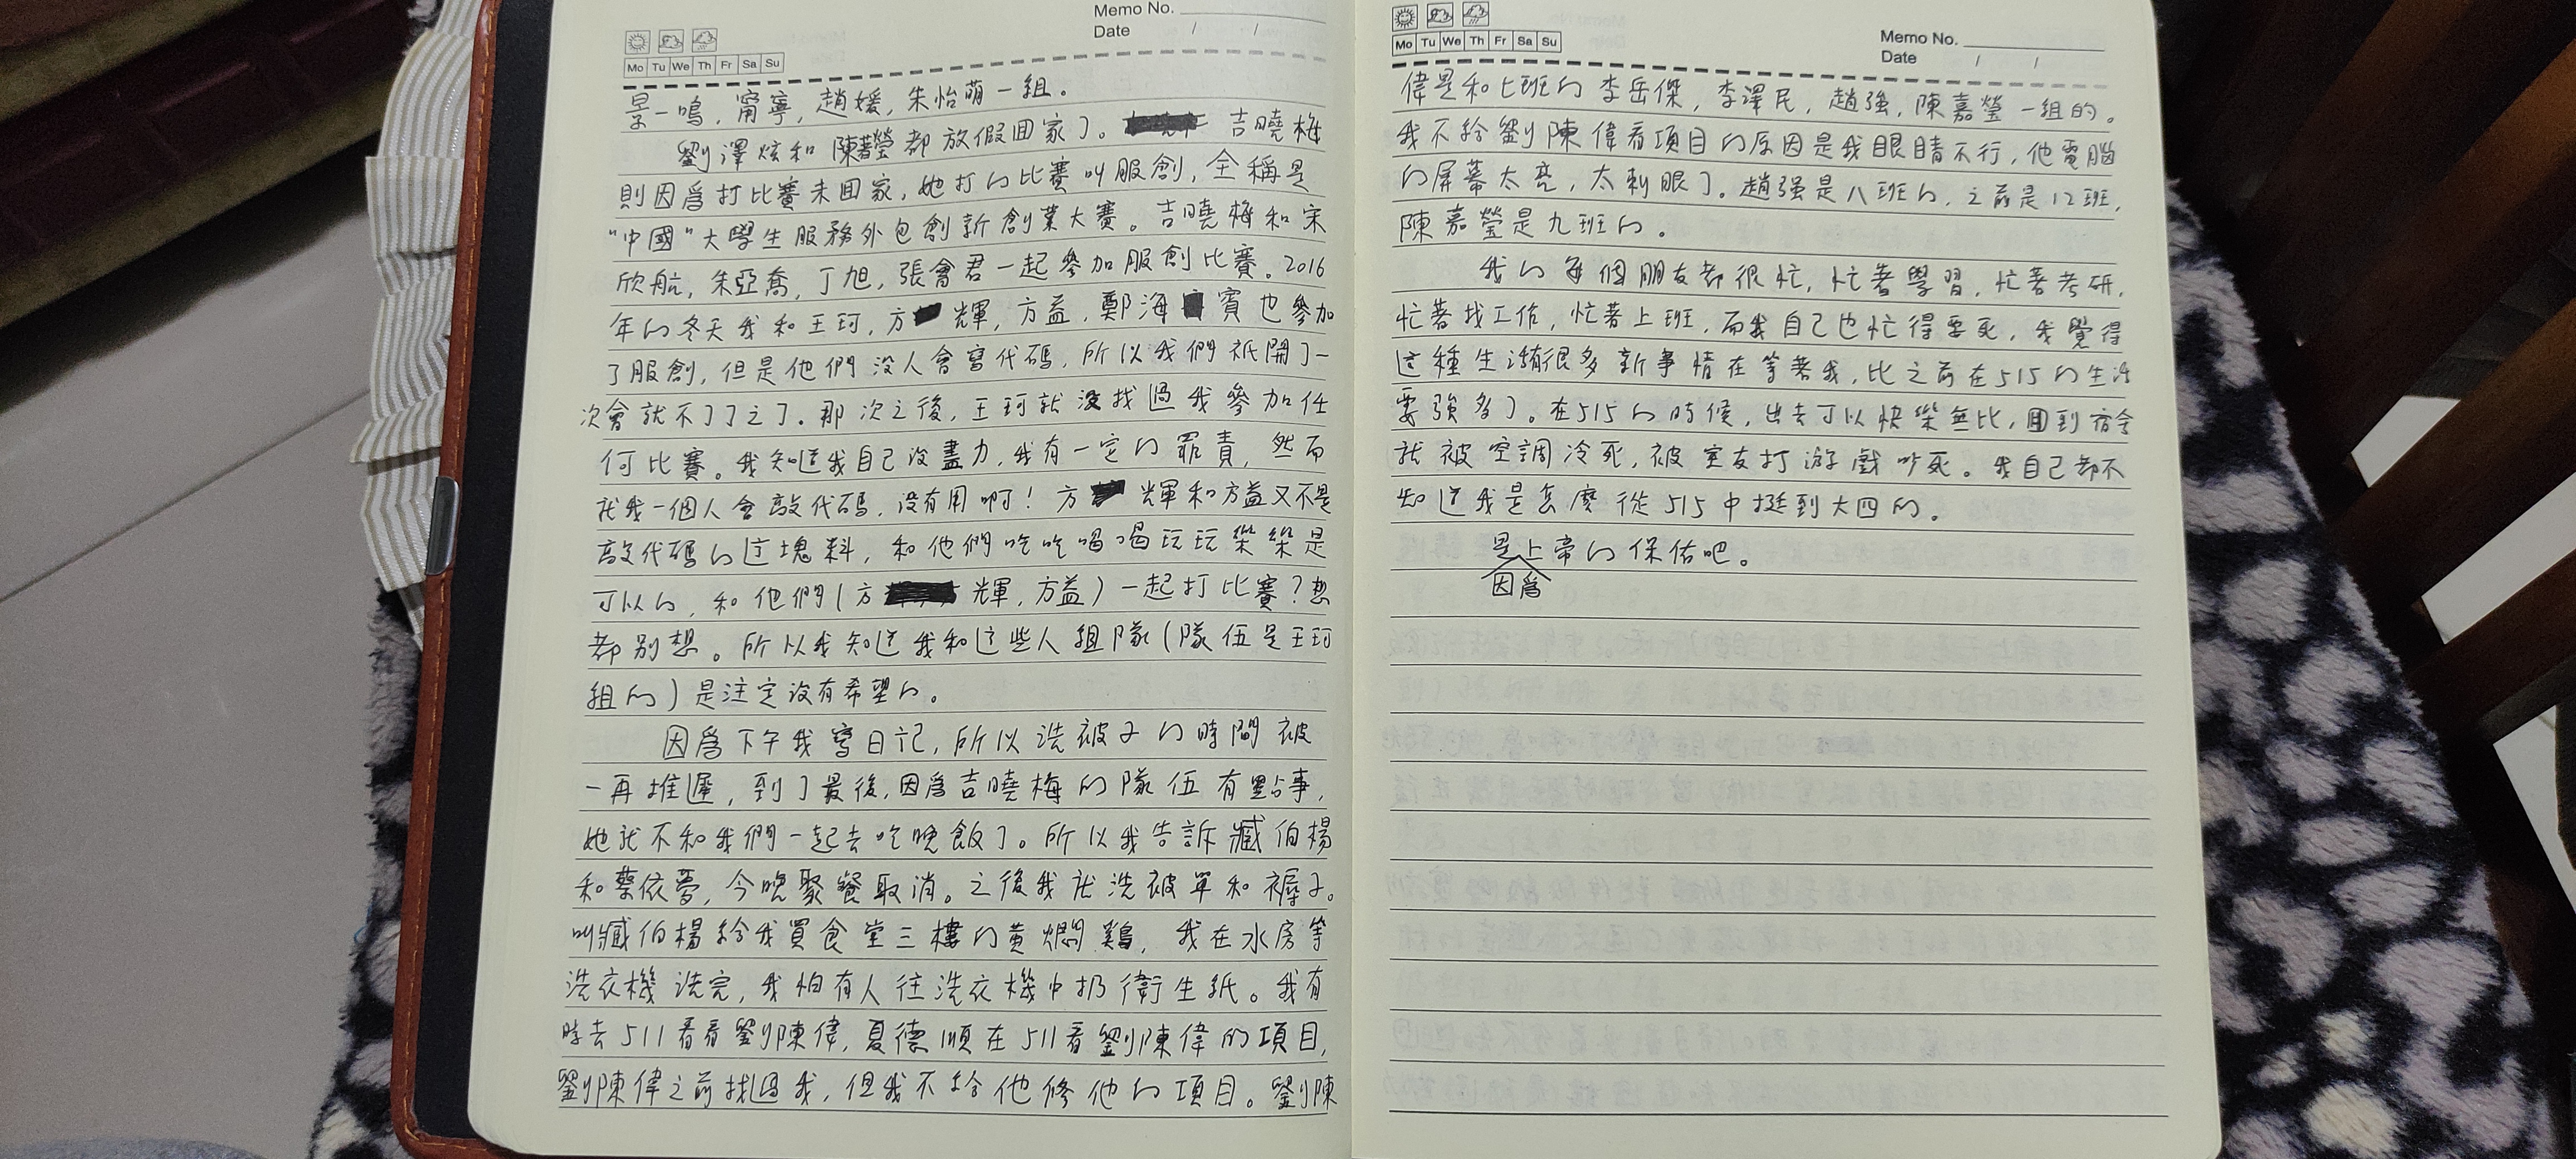 Memo No.
Date / /
Mo Tu We Th Fr Sa Su
景一鳴，甯寧，趙媛，朱怡萌一組。
劉澤炫和陳嘉瑩都放假回家了。吉曉梅
則因爲打比賽未回家，她打的比賽叫服創，全稱是
“中國”大學生服務外包創新創業大賽。吉曉梅和宋
欣航，朱亞喬，丁旭，張會君一起參加服創比賽。2016
年的冬天我和王珂，方輝，方益，鄭海賓也參加
了服創，但是他們没人會寫代碼，所以我們衹開了一
次會就不了了之了。那次之後，王珂就没找過我參加任
何比賽。我知道我自己没盡力，我有一定的罪責，然而
就我一個人會敲代碼，没有用啊！方輝和方益又不是
敲代碼的這塊料，和他們吃吃喝喝玩玩樂樂是
可以的，和他們（方輝，方益）一起打比賽？想
都别想。所以我知道我和這些人組隊（隊伍是王珂
組的）是注定没有希望的。
因爲下午我寫日記，所以洗被子的時間被
一再推遲，到了最後，因爲吉曉梅的隊伍有點事，
她就不和我們一起去吃晚飯了。所以我告訴臧伯楊
和蔡依夢，今晚聚餐取消。之後我就洗被單和褥子。
叫臧伯楊給我買食堂三樓的黄燜鷄，我在水房等
洗衣機洗完，我怕有人往洗衣機中扔衛生紙。我有
時去511看看劉陳偉，夏德順在511看劉陳偉的項目，
劉陳偉之前找過我，但我不給他修他的項目。劉陳
Mo Tu We Th Fr Sa Su
Memo No.
Date / /
偉是和七班的李岳傑，李澤民，趙强，陳嘉瑩一組的。
我不給劉陳偉看項目的原因是我眼睛不行，他電腦
的屏幕太亮，太刺眼了。趙强是八班的，之前是12班，
陳嘉瑩是九班的。
我的每個朋友都很忙，忙著學習，忙著考研，
忙著找工作，忙著上班，而我自己也忙得要死，我覺得
這種生活有很多新事情在等著我，比之前在515的生活
要強多了。在515的時候，出去可以快樂無比，回到宿舍
就被空調冷死，被室友打游戲吵死。我自己都不
知道我是怎麽從515中挺到大四的。
是上帝的保佑吧。
因爲